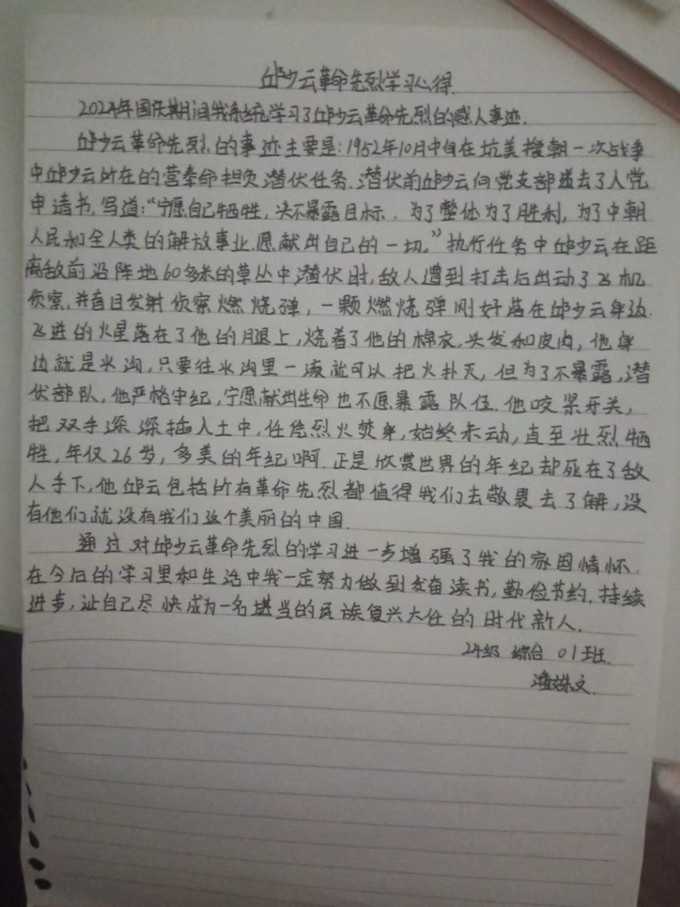 邱少云革命先烈学习心得.
2024年国庆期间我系统学习了邱少云革命先烈的感人事迹.
邱少云革命先烈的事迹主要是:1952年10月中旬在抗美援朝一次战争
中邱少云所在的营奉命担负潜伏任务.潜伏前邱少云向党支部递去了入党
申请书,写道:“宁愿自己牺牲,决不暴露目标,为了整体为了胜利,为了中朝
人民和全人类的解放事业.愿献出自己的一切.”执行任务中邱少云在距
离敌前沿阵地60多米的草丛中潜伏时,敌人遭到打击后出动了飞机
侦察,并盲目发射侦察燃烧弹,一颗燃烧弹刚好落在邱少云身边.
飞进的火星落在了他的腿上,烧着了他的棉衣,头发和皮肉,他身
边就是水沟,只要往水沟里一滚就可以把火扑灭,但为了不暴露,潜
伏部队,他严格守纪,宁愿献出生命也不愿暴露队伍.他咬紧牙关,
把双手深深插入土中,任凭烈火焚身,始终未动,直至壮烈牺
牲,年仅26岁,多美的年纪啊.正是欣赏世界的年纪却死在了敌
人手下,他邱云包括所有革命先烈都值得我们去敬畏去了解,没
有他们就没有我们这个美丽的中国.
通过对邱少云革命先烈的学习进一步增强了我的家国情怀.
在今后的学习里和生活中我一定努力做到发奋读书,勤俭节约.持续
进步,让自己尽快成为一名堪当的民族复兴大任的时代新人.
24级 综合 01班.
文.